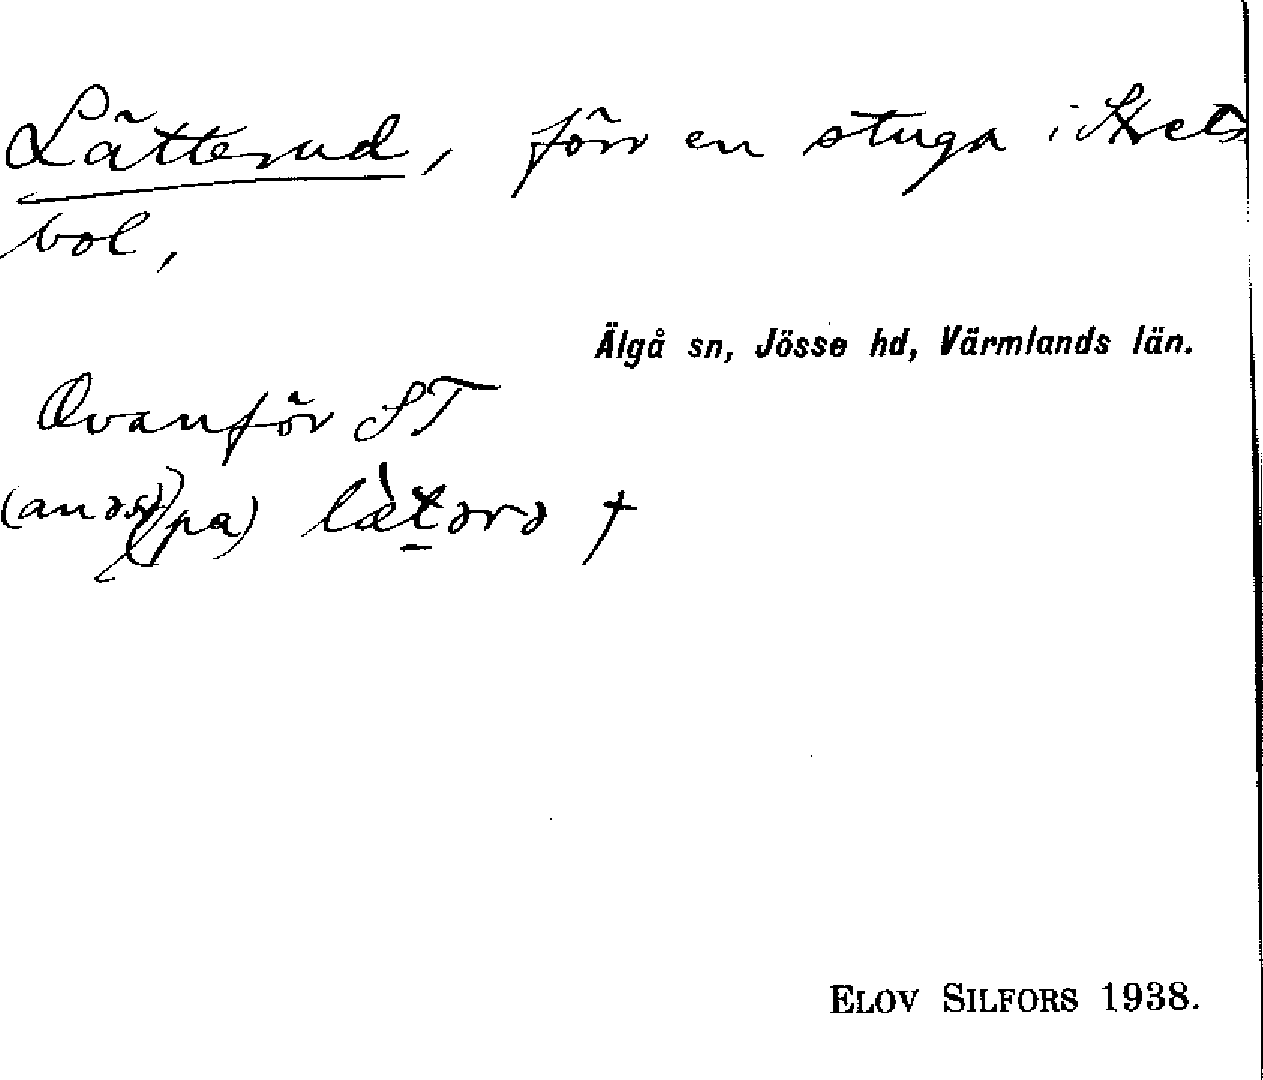 Lätterud, förr en stuga i Strets
bol,
Älgå sn, Jösse hd, Värmlands län.
Ovanför ST
pa) lætərə †
ELOV SILFORS 1938.